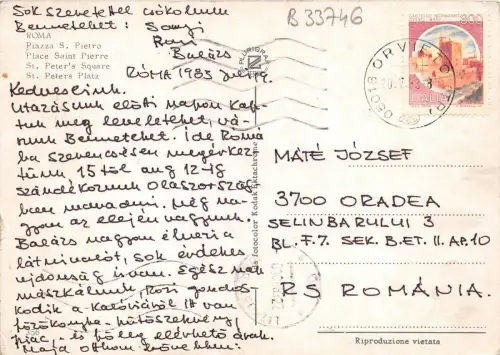 Sok szeretettel csókolunk
Benneteket: Sanyi
Rozi
Balázs
B 33746
ROMA
Piazza S. Pietro
Place Saint Pierre
St. Peter's Square
St. Peters Platz
RÓMA 1983 júl. 14.
Kedveseink.
Utazásunk előtti napon kap-
tuk meg leveleteket, vá-
runk Benneteket. Ide Rómá
ba szerencsésen megérkez-
tünk, 15től aug 12-ig
szándékozunk Olaszország-
ban maradni. Még na-
gyon az elején vagyunk.
Balázs nagyon élvezi a
látnivalót, sok érdekes
újdonság is van. Egész nap
mászkálunk, Rozi gondos-
kodik a kalóriáról. Itt van
főzőkonyha - hűtőszekrény,
piac, - és főleg elérhető árak.
Majd otthon bővebben:
556
PLURIGRAF
fotocolor Kodak Ektachrome
05018 ORVIETO (TR)
ITALIA
300
MÁTÉ JÓZSEF
3700 ORADEA
SELINBARULUI 3
BL. F.7. SEK. B. ET. II. AP. 10
RS ROMÁNIA.
Riproduzione vietata